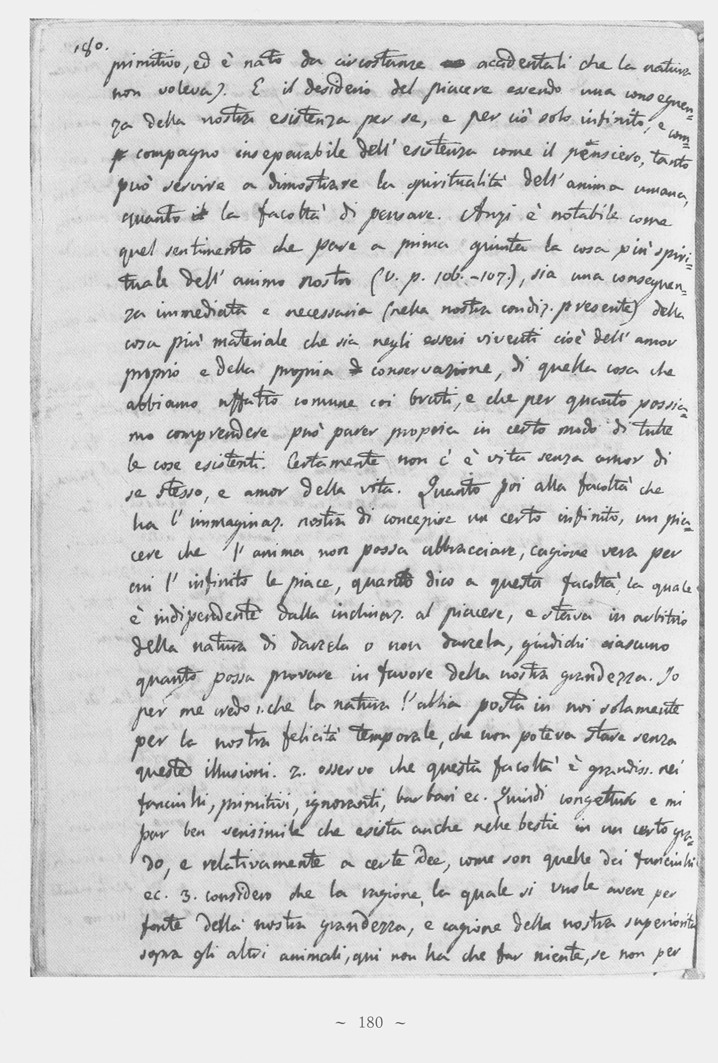 180.
primitivo, ed è nato da circostanze accidentali che la natura
non voleva). E il desiderio del piacere essendo una conseguen=
za della nostra esistenza per se, e per ciò solo infinito, e com=
compagno inseparabile dell' esistenza come il pensiero, tanto
può servire a dimostrare la spiritualità dell' anima umana,
quanto la facoltà di pensare. Anzi è notabile come
quel sentimento che pare a prima giunta la cosa più spiri=
tuale dell' animo nostro (v. p. 106.-107.), sia una conseguen=
za immediata e necessaria (nella nostra condiz. presente) della
cosa più materiale che sia negli esseri viventi cioè dell' amor
proprio e della propria conservazione, di quella cosa che
abbiamo affatto comune coi bruti, e che per quanto possia=
mo comprendere può parer propria in certo modo di tutte
le cose esistenti. Certamente non c' è vita senza amor di
se stesso, e amor della vita. Quanto poi alla facoltà che
ha l' immaginaz. nostra di concepire un certo infinito, un pia=
cere che l' anima non possa abbracciare, cagione vera per
cui l' infinito le piace, quanto dico a questa facoltà, la quale
è indipendente dalla inclinaz. al piacere, e stava in arbitrio
della natura di darcela o non darcela, giudichi ciascuno
quanto possa provare in favore della nostra grandezza. Io
per me credo 1. che la natura l' abbia posta in noi solamente
per la nostra felicità temporale, che non poteva stare senza
queste illusioni. 2. osservo che questa facoltà è grandiss. nei
fanciulli, primitivi, ignoranti, barbari ec. Quindi congetturo e mi
par ben verisimile che esista anche nelle bestie in un certo gra=
do, e relativamente a certe idee, come son quelle dei fanciulli
ec. 3. considero che la ragione, la quale si vuole avere per
fonte della nostra grandezza, e cagione della nostra superiorità
sopra gli altri animali, qui non ha che far niente, se non per
~ 180 ~